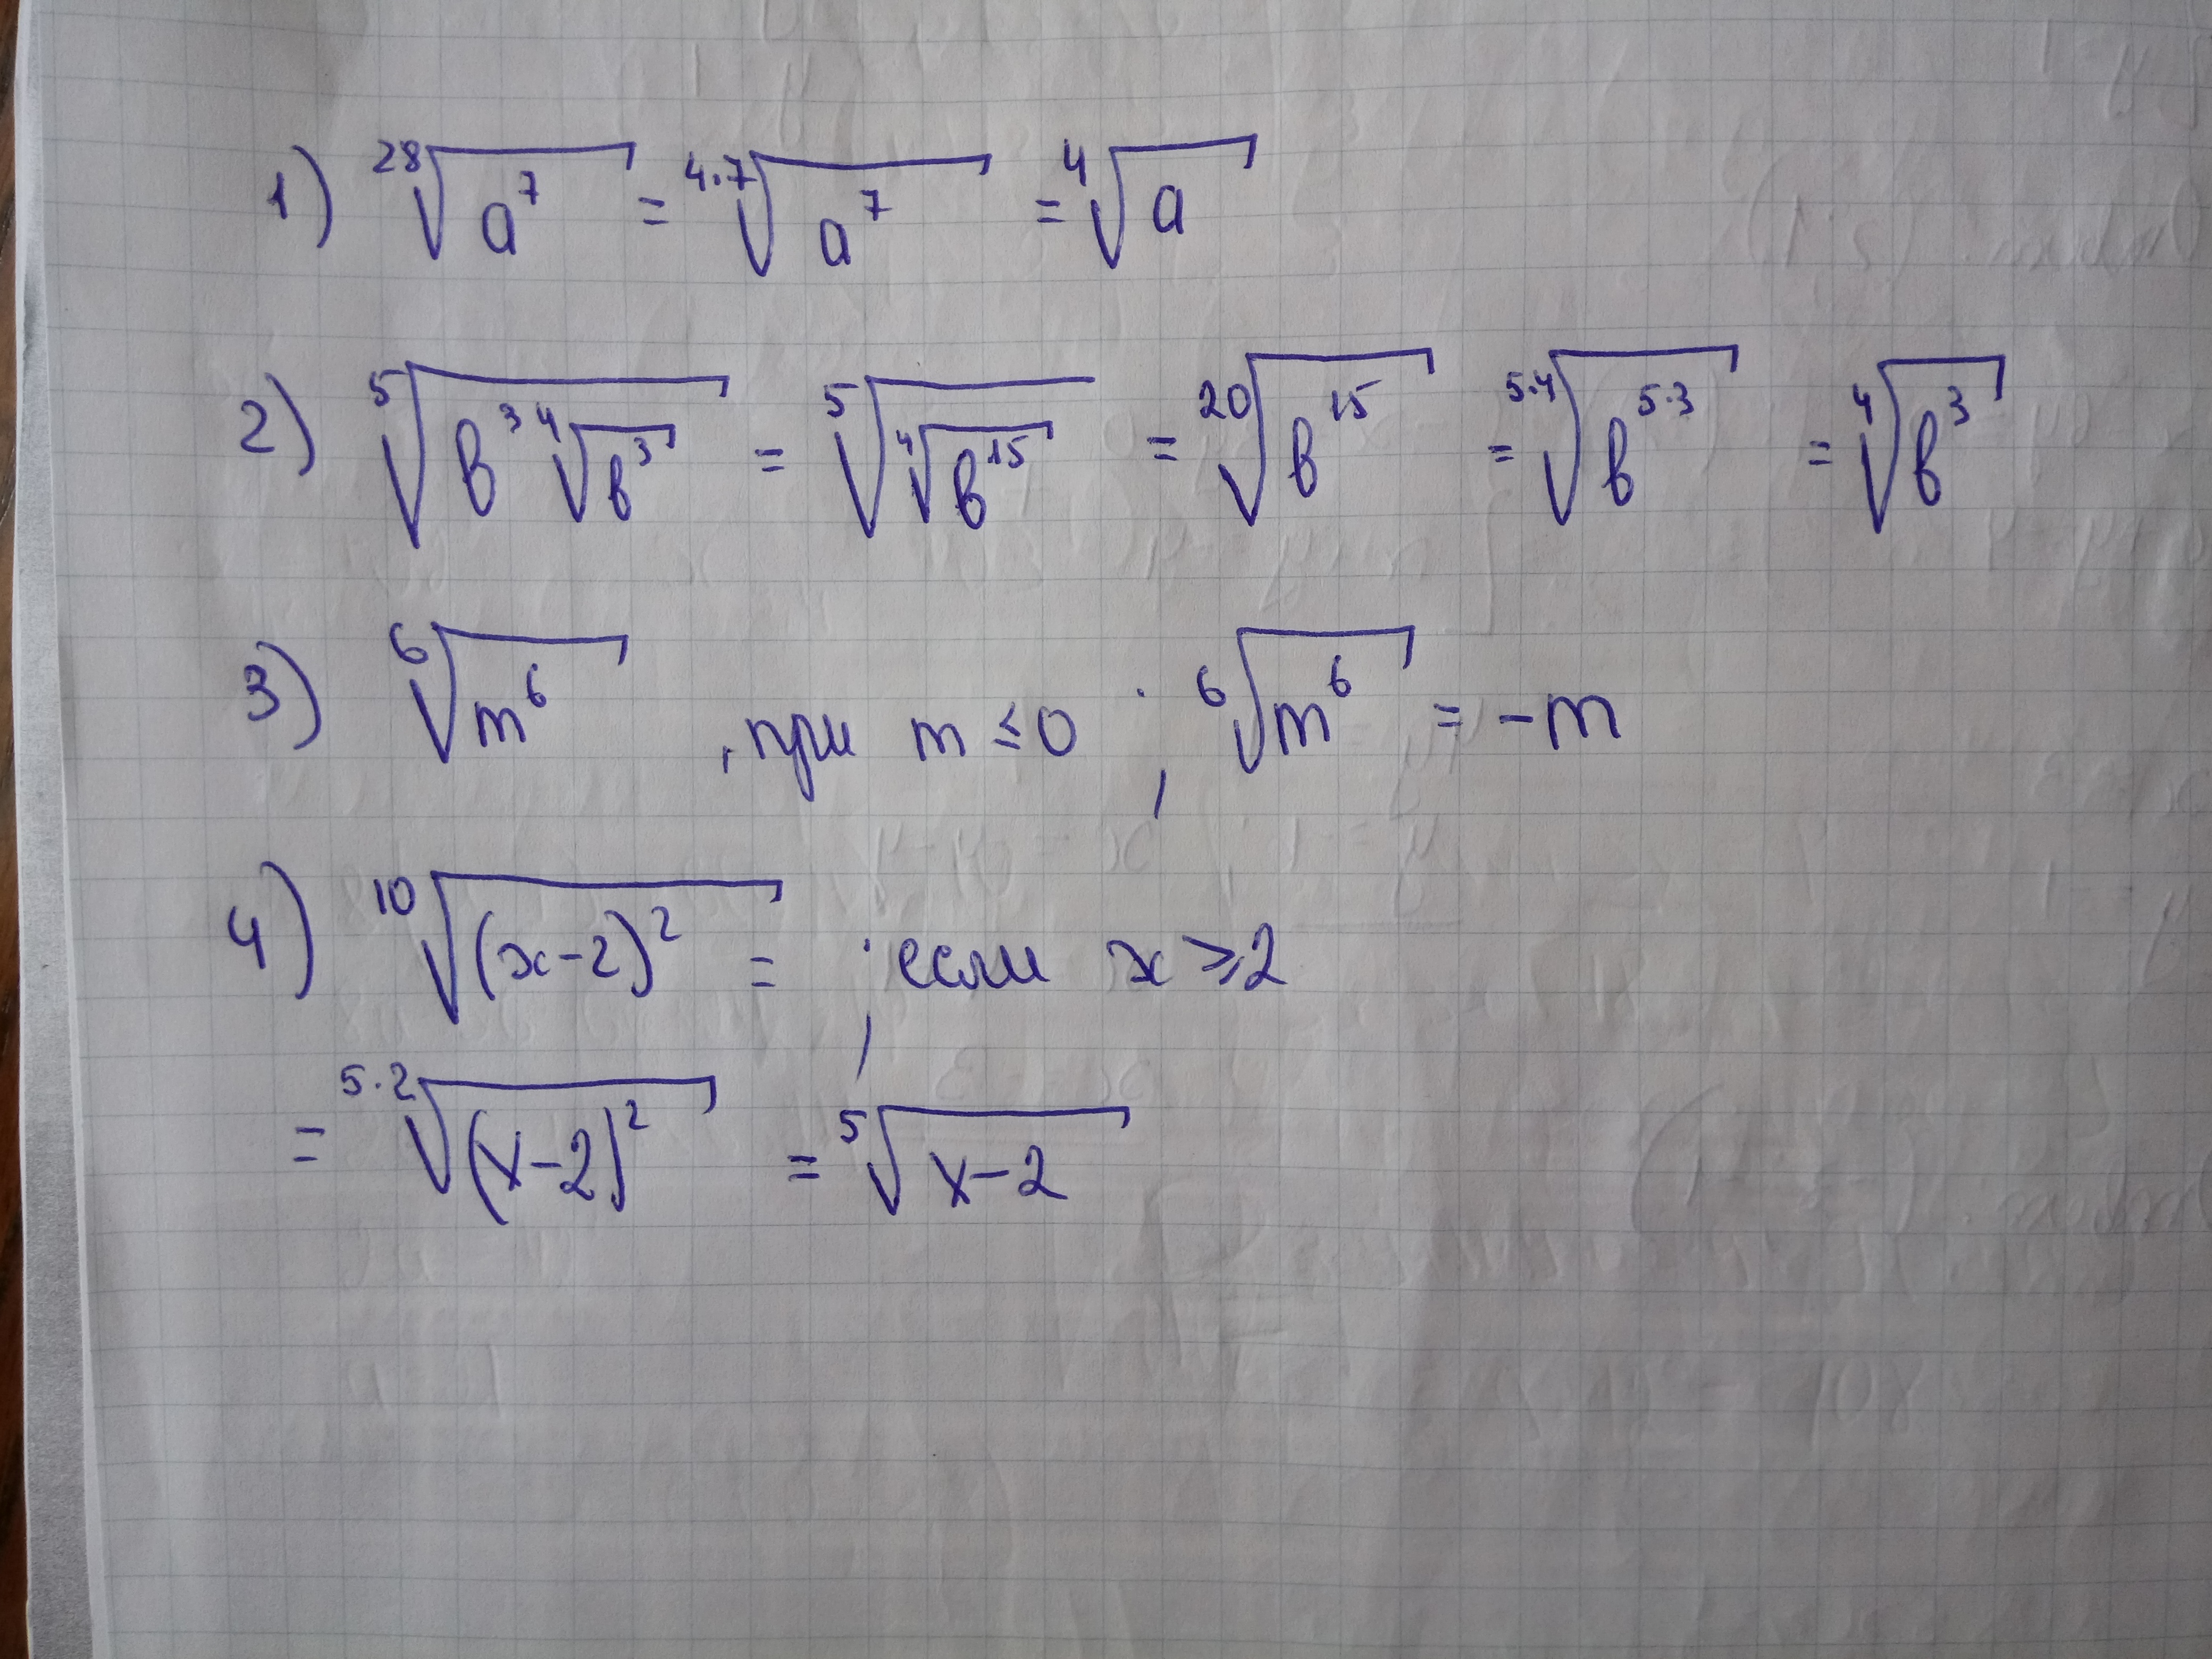 1) ²⁸√a⁷ = ⁴·⁷√a⁷ = ⁴√a
2) ⁵√(в³ ⁴√в³) = ⁵√(⁴√в¹⁵) = ²⁰√в¹⁵ = ⁵·⁴√в⁵·³ = ⁴√в³
3) ⁶√m⁶ , при m ≤ 0 ; ⁶√m⁶ = -m
4) ¹⁰√(x-2)² = ; если x ≥ 2
= ⁵·²√(x-2)² = ⁵√x-2